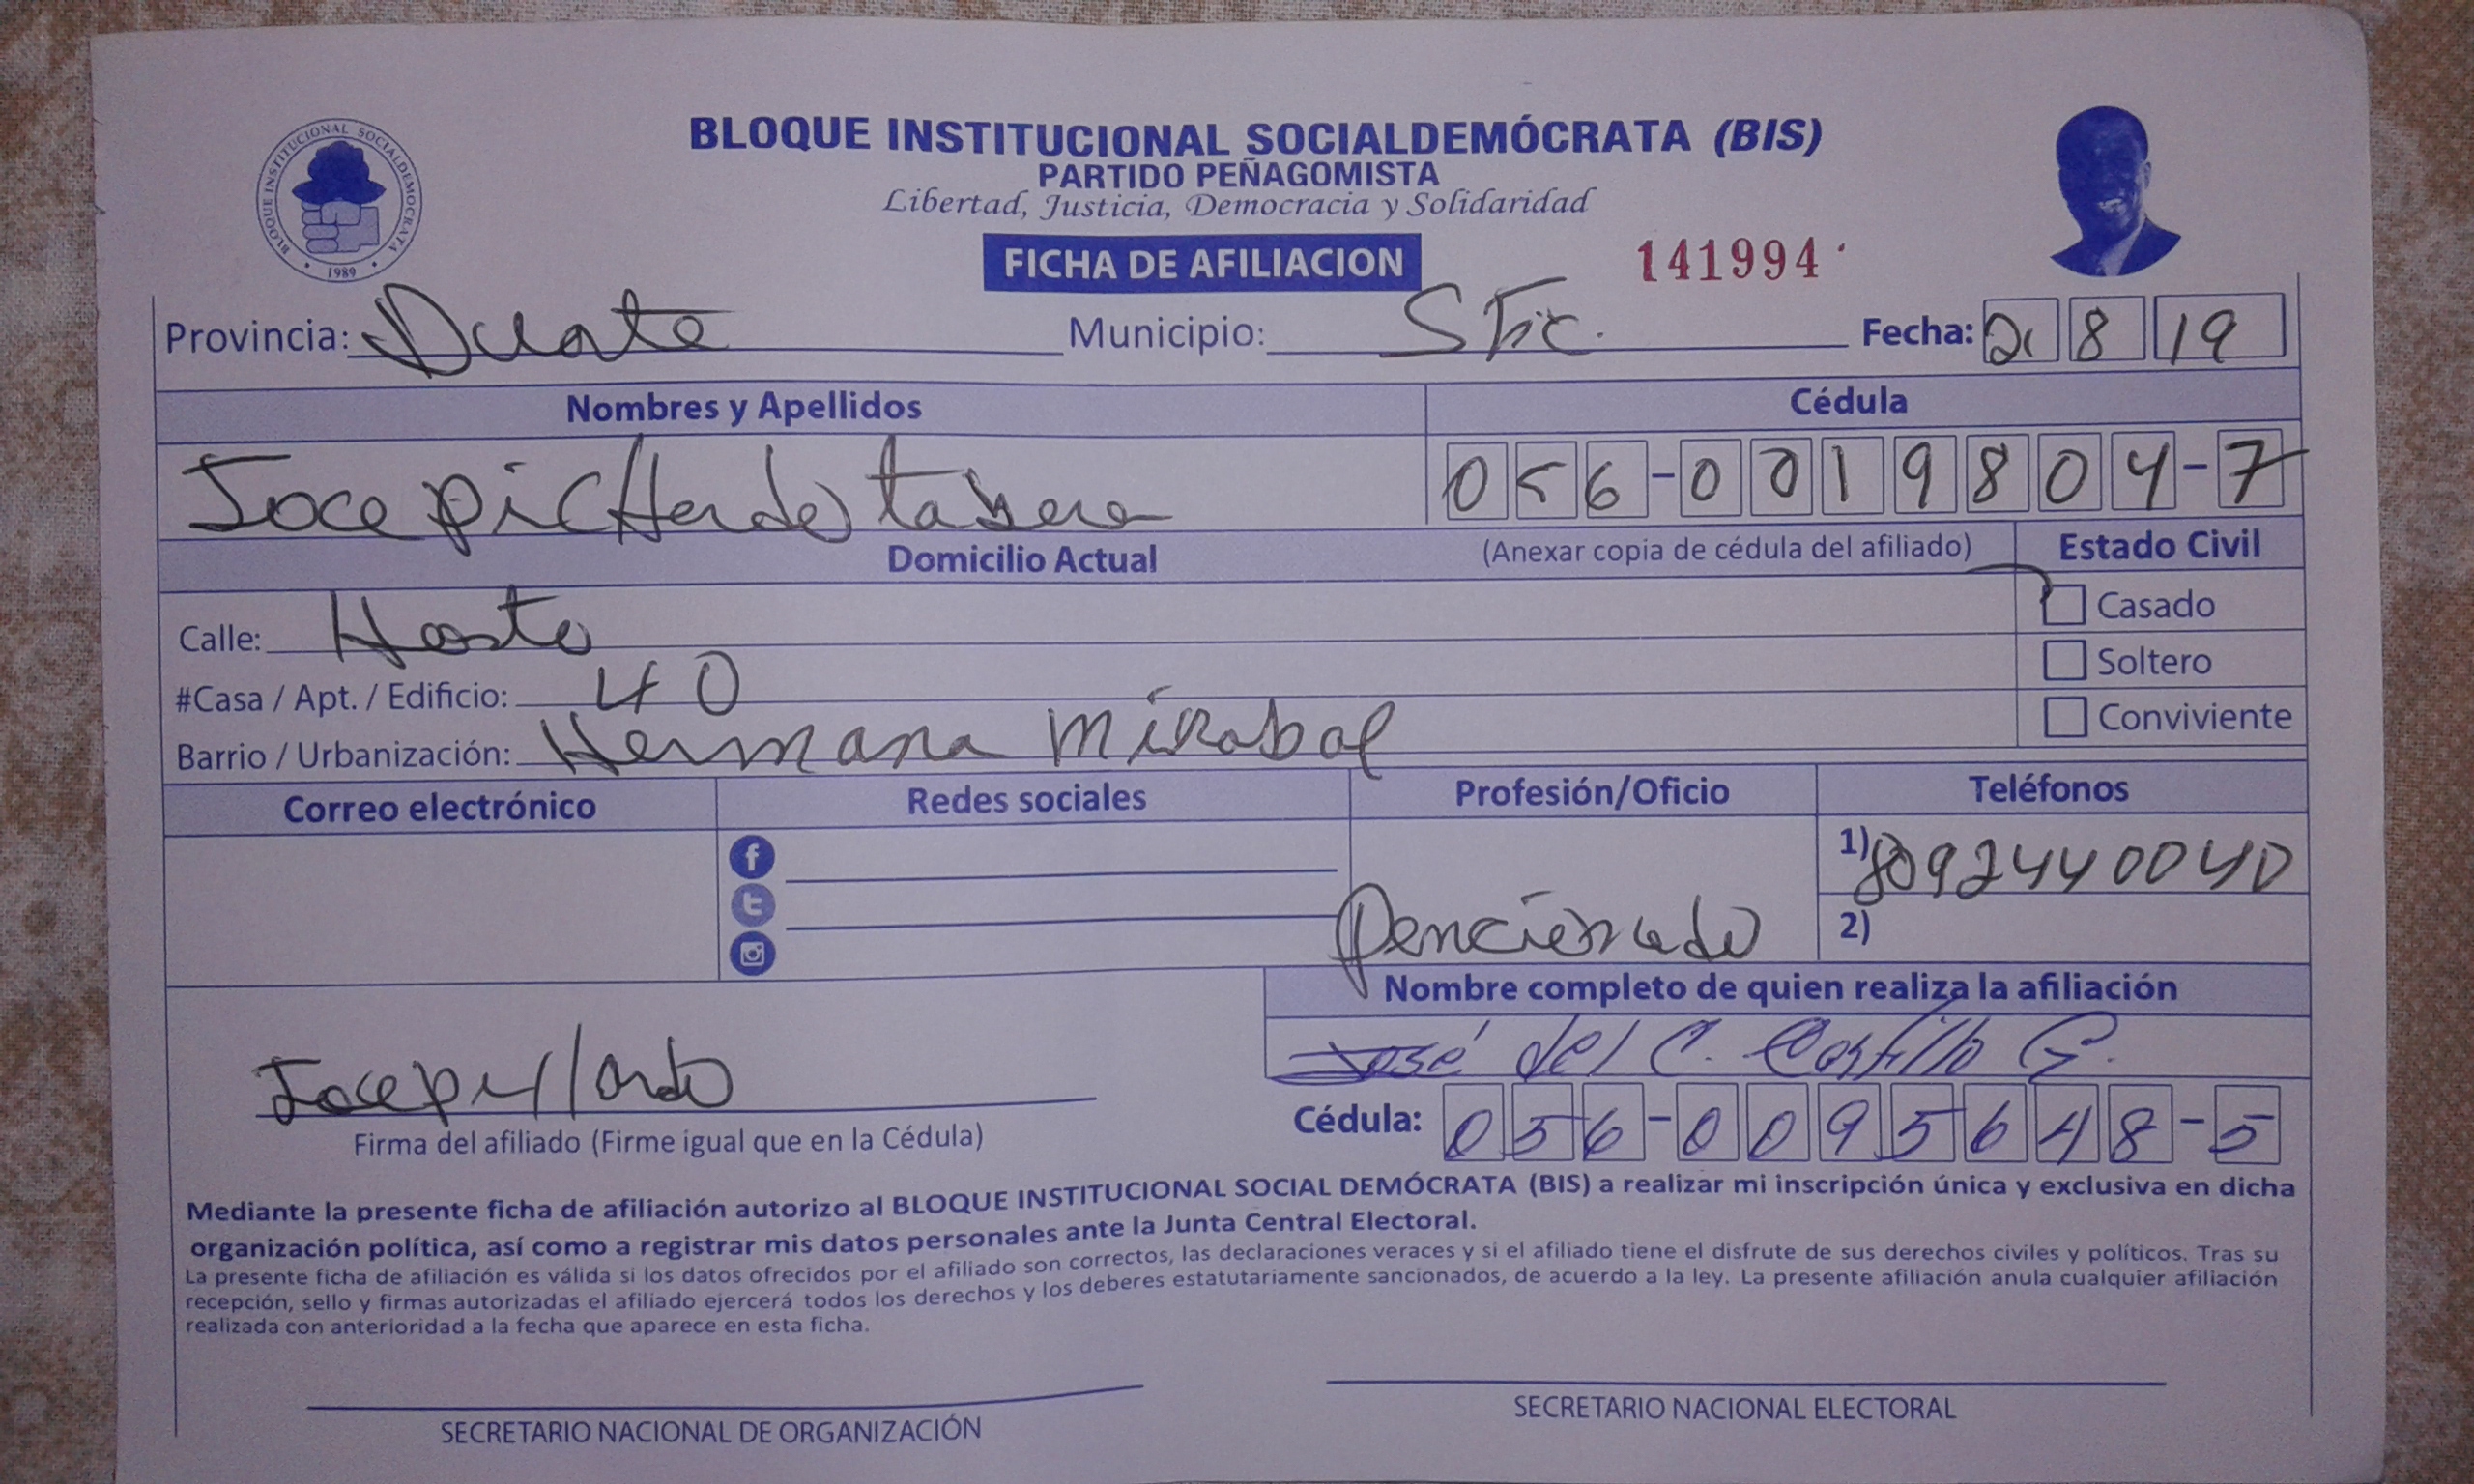 BLOQUE INSTITUCIONAL SOCIALDEMOCRATA
1989
BLOQUE INSTITUCIONAL SOCIALDEMÓCRATA (BIS)
PARTIDO PEÑAGOMISTA
Libertad, Justicia, Democracia y Solidaridad
FICHA DE AFILIACION 141994
Provincia: Duarte Municipio: SFic. Fecha: 8 19
Nombres y Apellidos Cédula
Joce picHardo tabera 056-0019804-7
Domicilio Actual (Anexar copia de cédula del afiliado) Estado Civil
Casado
Calle: Hosto
Soltero
#Casa / Apt. / Edificio: 40
Conviviente
Barrio / Urbanización: Hermana mirabal
Correo electrónico Redes sociales Profesión/Oficio Teléfonos
1) 8092440040
Pencionado 2)
Nombre completo de quien realiza la afiliación
José del C. Castillo G.
Cédula: 056-0095648-5
Firma del afiliado (Firme igual que en la Cédula)
Mediante la presente ficha de afiliación autorizo al BLOQUE INSTITUCIONAL SOCIAL DEMÓCRATA (BIS) a realizar mi inscripción única y exclusiva en dicha
organización política, así como a registrar mis datos personales ante la Junta Central Electoral.
La presente ficha de afiliación es válida si los datos ofrecidos por el afiliado son correctos, las declaraciones veraces y si el afiliado tiene el disfrute de sus derechos civiles y políticos. Tras su
recepción, sello y firmas autorizadas el afiliado ejercerá todos los derechos y los deberes estatutariamente sancionados, de acuerdo a la ley. La presente afiliación anula cualquier afiliación
realizada con anterioridad a la fecha que aparece en esta ficha.
SECRETARIO NACIONAL DE ORGANIZACIÓN SECRETARIO NACIONAL ELECTORAL